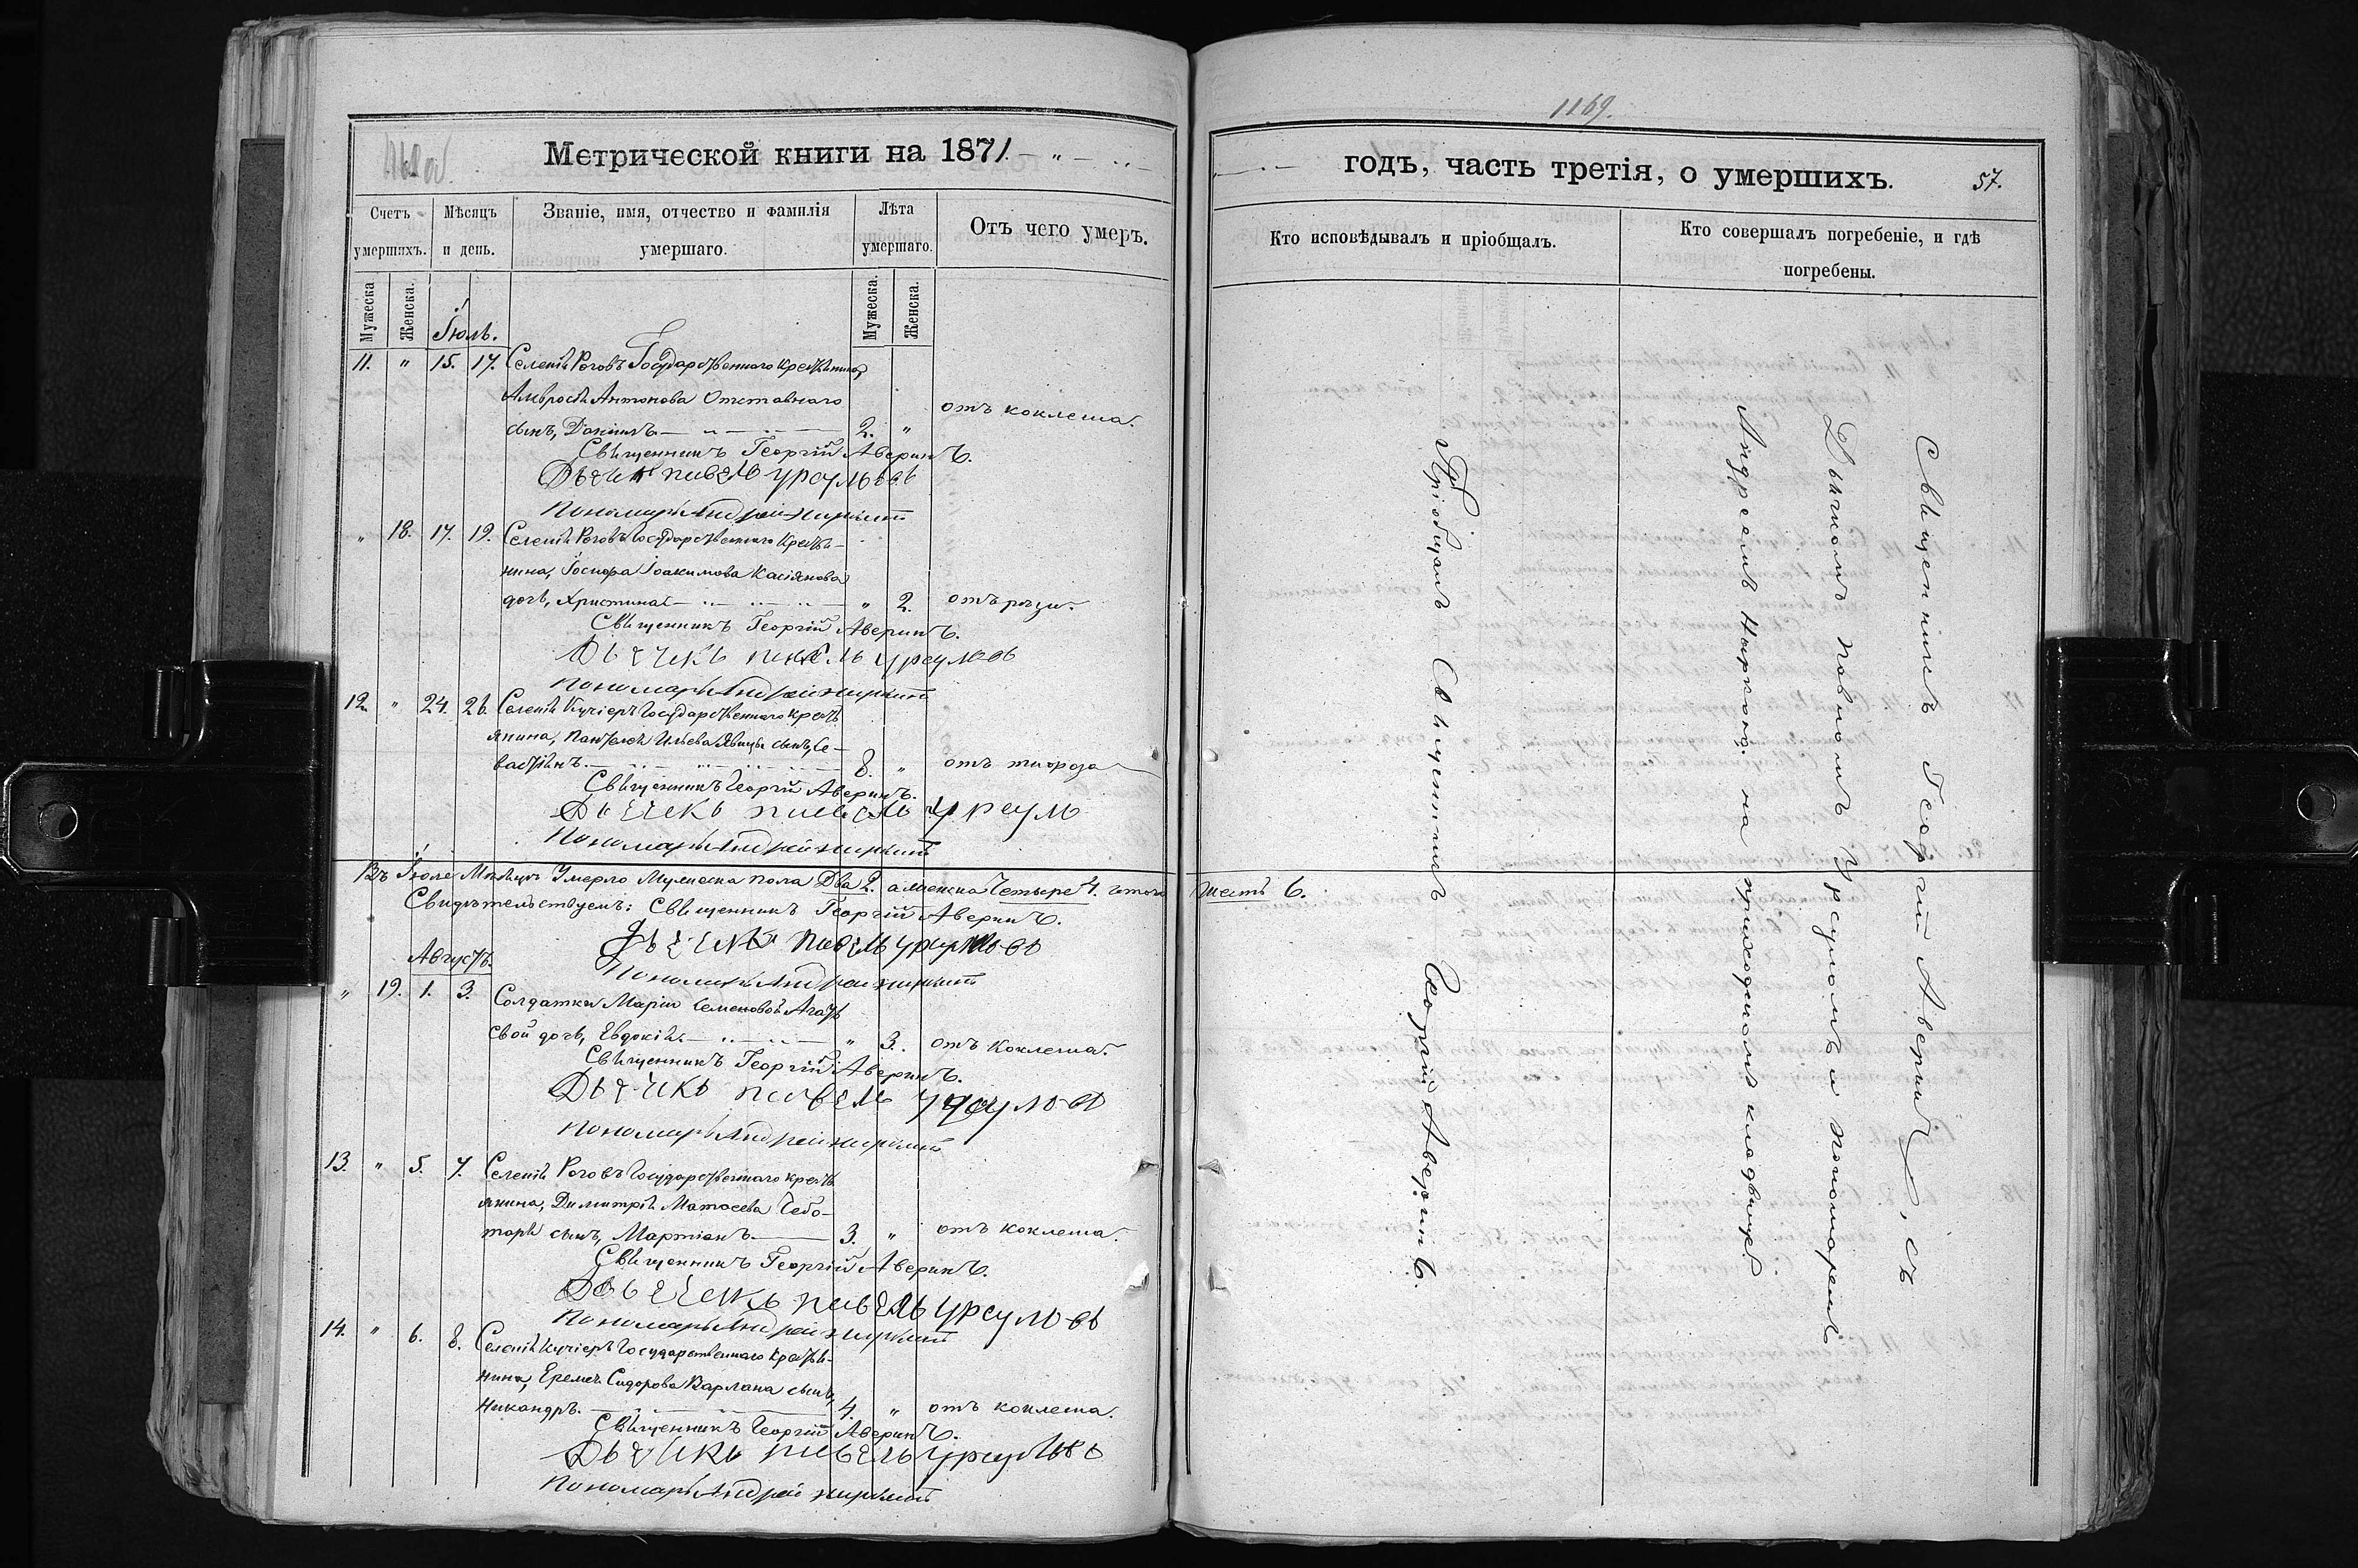 1169.
Метрической книги на 1871
годъ, часть третія, о умершихъ.
57.
Счетъ умершихъ.
Мѣсяцъ и день.
Званіе, имя, отчество и фамилія умершаго.
Лѣта умершаго.
Отъ чего умеръ.
Кто исповѣдывалъ и пріобщалъ.
Кто совершалъ погребеніе, и гдѣ погребены.
Мужеска
Женска.
Мужеска.
Женска.
Іюль.
11. " 15. 17. Селенія Роговъ Государственнаго крестьянина,
Амвросія Антонова Отставнаго
сынъ, Даніилъ 2. " отъ коклеша.
Священникъ Георгій Аверинъ.
Дьячекъ павелъ урсуловъ
Пономарь Андрей
" 18. 17. 19. Селенія Роговъ Государственнаго крестья-
нина, Іоакимова Касіянова
дочь, Христина " 2. отъ
Священникъ Георгій Аверинъ.
Дьячекъ павелъ урсуловъ
Пономарь Андрей
12. " 24. 26. Селенія Кучіеръ Государственнаго кресть
янина, Пантелея Ильева сынъ, Се-
вастіянъ. 8. " отъ
Священникъ Георгій Аверинъ.
Дьячекъ павелъ урсул
Пономарь Андрей
Въ Іюле Месяце Умерло Мужеска пола Два 2. а женска Четыре 4. итого шесть 6.
Свидетельствуемъ: Священникъ Георгій Аверинъ.
Дьячекъ павелъ урсуловъ
Пономарь Андрей
Августъ.
" 19. 1. 3. Солдатки Маріи Семеновой
свой дочь, Евдокія. " 3. отъ Коклеша.
Священникъ Георгій Аверинъ.
Дьячекъ павелъ урсуловъ
Пономарь Андрей
13. " 5. 7. Селенія Роговъ Государственнаго кресть
янина, Димитрія Матөеева Чебо-
таря сынъ, Мартіанъ. 3. " отъ коклеша.
Священникъ Георгій Аверинъ.
Дьячекъ павелъ урсуловъ
Пономарь Андрей
14. " 6. 8. Селенія Кучіеръ Государственнаго крестья-
нина, Еремея Сидорова Варлана сынъ,
Никандръ. 4. " отъ коклеша.
Священникъ Георгій Аверинъ.
Дьячекъ павелъ урсуловъ
Пономарь Андрей
Пріобщалъ Священникъ Георгій Аверинъ.
Священникъ Георгій Аверинъ, съ
Дьячкомъ Павломъ Урсуломъ и пономаремъ
Андреемъ на приходскомъ кладбищѣ